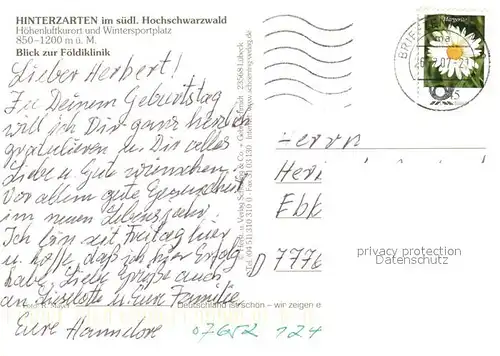 HINTERZARTEN im südl. Hochschwarzwald
Höhenluftkurort und Wintersportplatz
850-1200 m ü. M.
Blick zur Földiklinik
Lieber Herbert!
Zu Deinem Geburtstag
will ich Dir ganz herzlich
gratulieren u. Dir alles
Liebe u. Gute wünschen.
Vor allem gute Gesundheit
im neuen Lebensjahr.
Ich bin seit Freitag hier
u. hoffe, daß ich hier Erfolg
habe. Liebe Grüße auch
an Liselotte u. Eure Familie
Eure Hannelore
07652 124
Deutschland ist schön – wir zeigen e
BRIE
Margerite
45
Herrn
Heri
Ebb
D 7776
privacy protection
Datenschutz